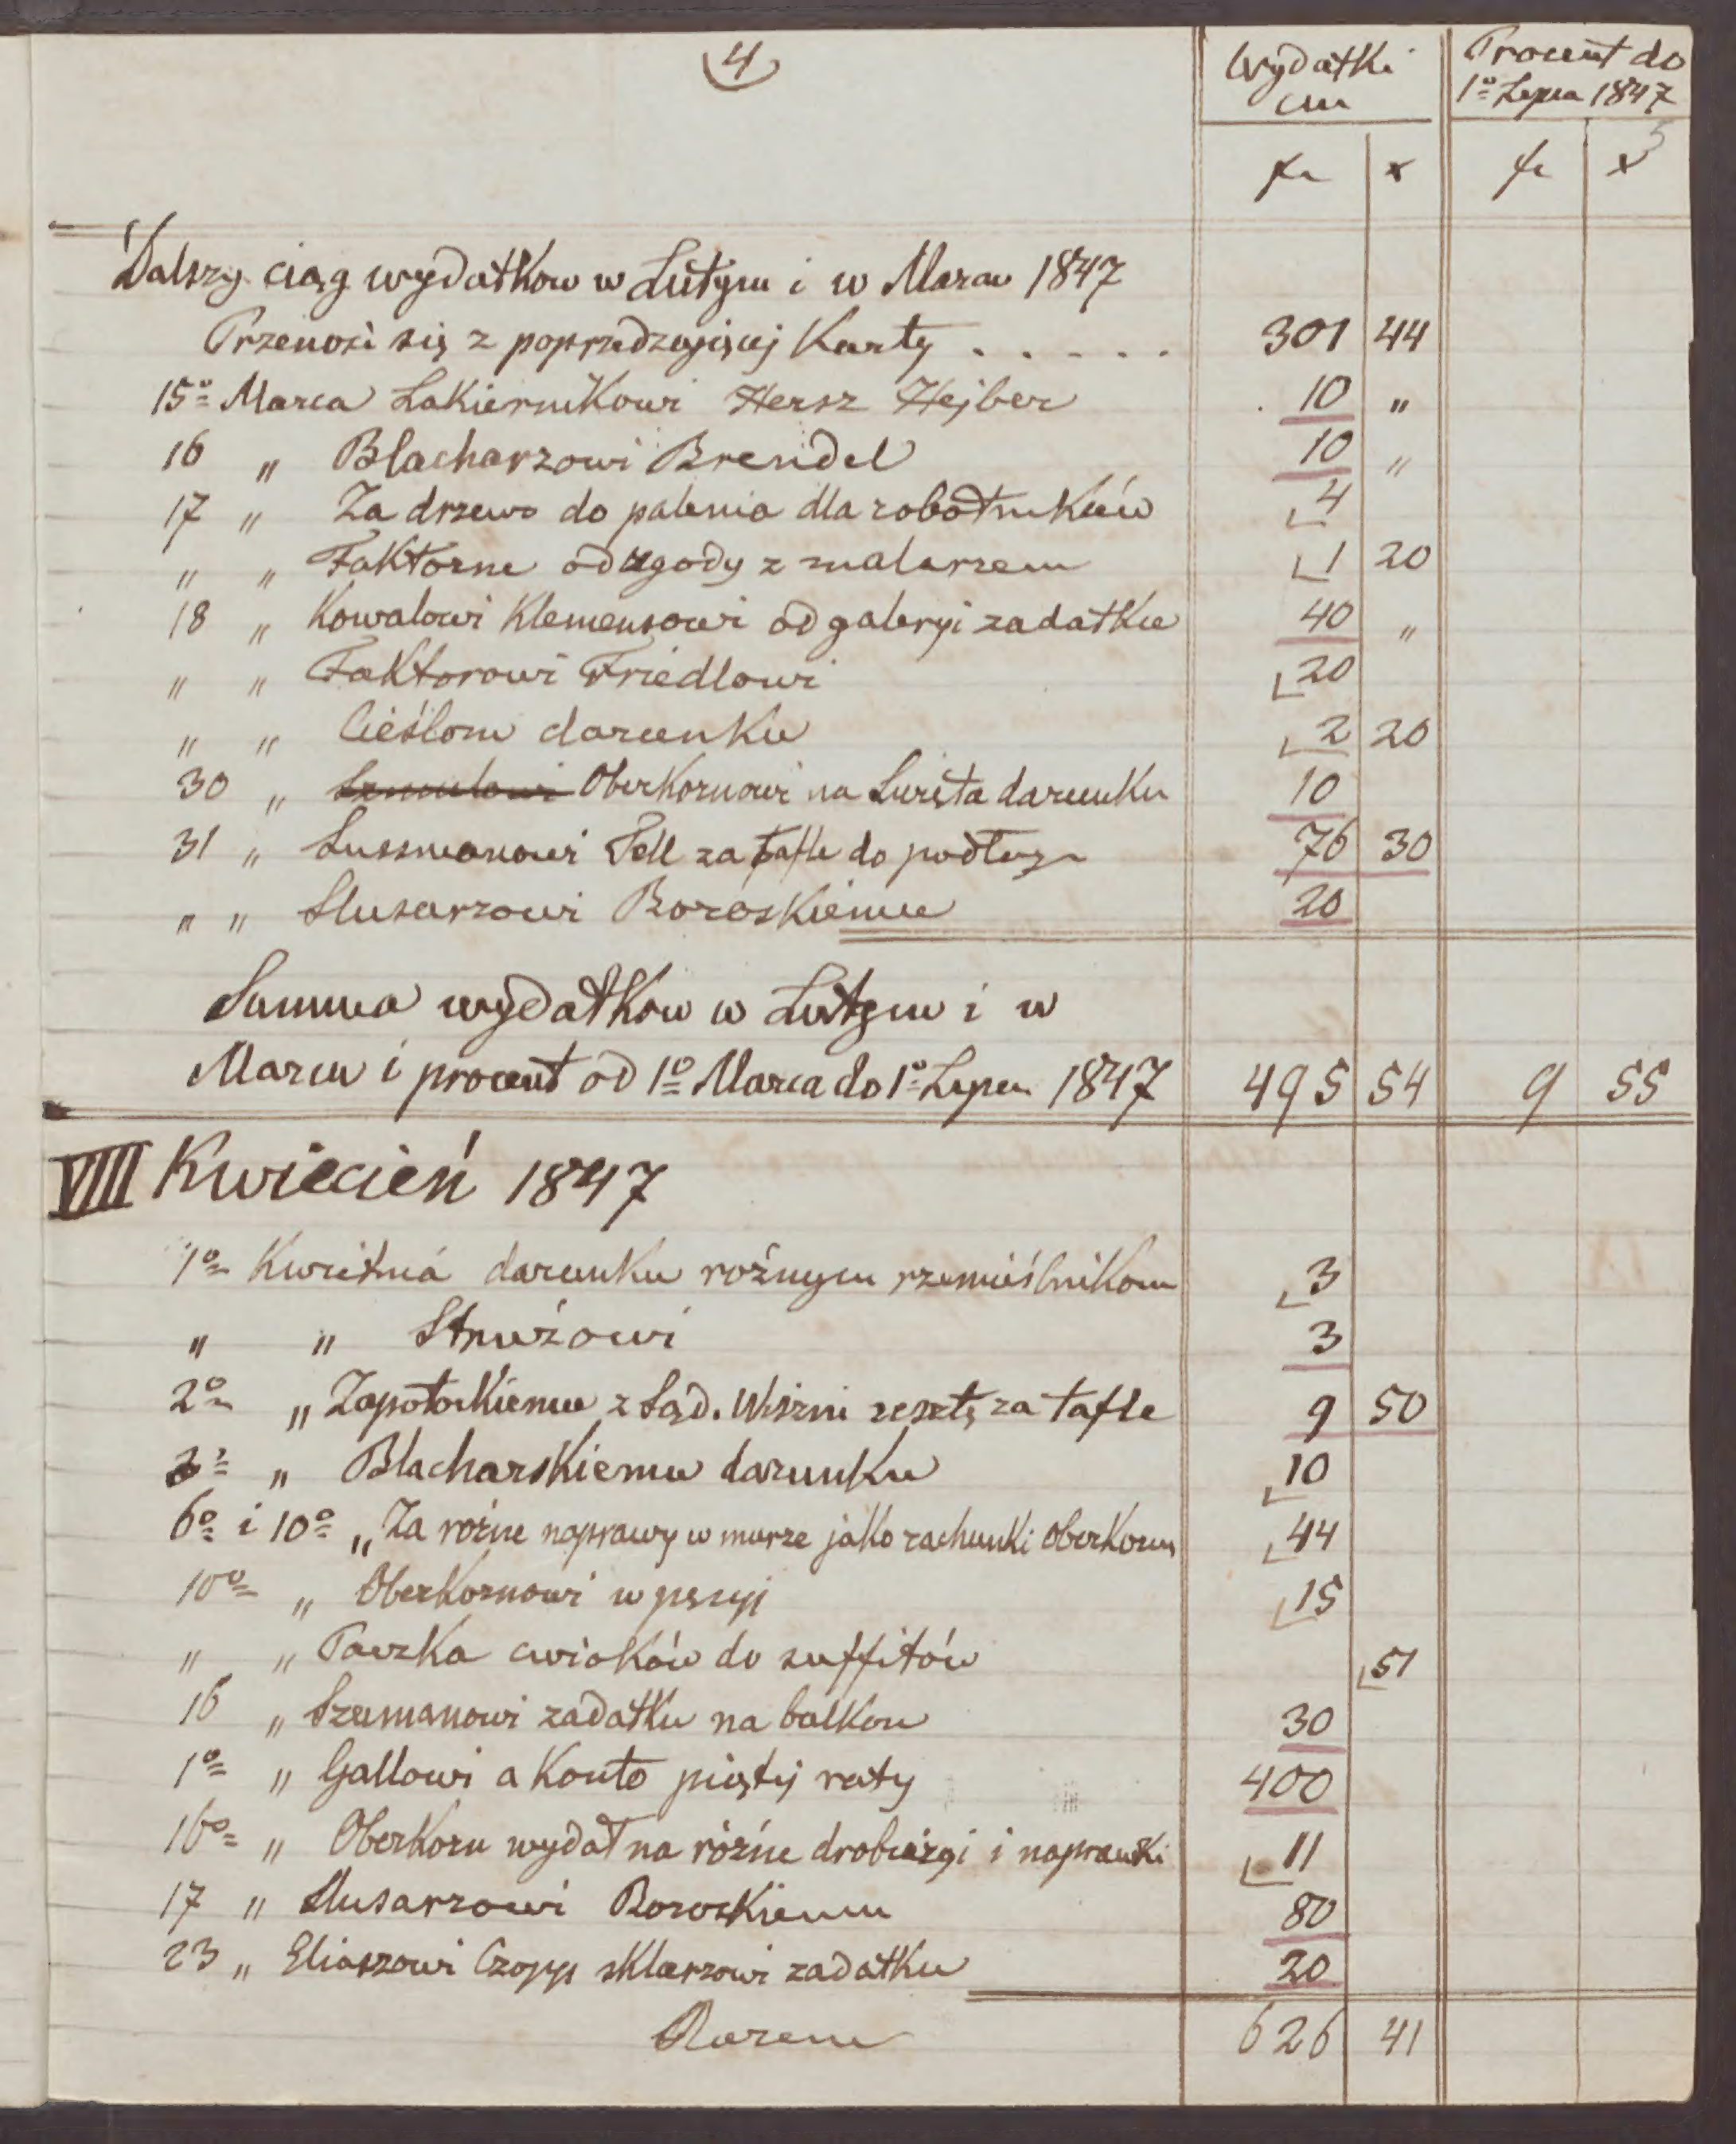 4
Wydatki Procent do
cm 1º Lipca 1847
5
fr x fr x
Dalszy ciąg wydatkow w Lutym i w Marcu 1847
Przenosi się z poprzedzającej Karty . . . . . 301 44
15º Marca Lakiernikowi Hersz Hejber 10 "
16 " Blacharzowi Brendel 10 "
17 " Za drzewo do palenia dla robotników 4
" " Faktorne od zgody z malarzem 1 20
18 " Kowalowi Klemensowi od galeryi zadatku 40 "
" " Faktorowi Friedlowi 20
" " Cieślom darunku 2 20
30 " Oberkornowi na Święta darunku 10
31 " Sussmanowi Fell za tafle do podłogi 76 30
" " Slusarzowi Boroskiemu 20
Summa wydatkow w Lutym i w
Marcu i procent od 1º Marca do 1º Lipca 1847 495 54 9 55
VIII Kwiecień 1847
1º Kwietnia darunku rożnym rzemieślnikom 3
" " Strużowi 3
2º " Zapotockiemu z Sąd. Wiszni resztę za tafle 9 50
" Blacharskiemu darunku 10
6º i 10º " Za rożne naprawy w murze jako rachunki Oberkorn 44
10º " Oberkornowi w pęsyi 15
" " Paczka cwioków do suffitów 51
16 " Szumanowi zadatku na balkon 30
1º " Gallowi a Konto piątej raty 400
16º " Oberkorn wydał na różne drobiazgi i naprawki 11
17 " Slusarzowi Boroskiemu 80
23 " Eliaszowi Czopp sklarzowi zadatku 20
Razem 626 41